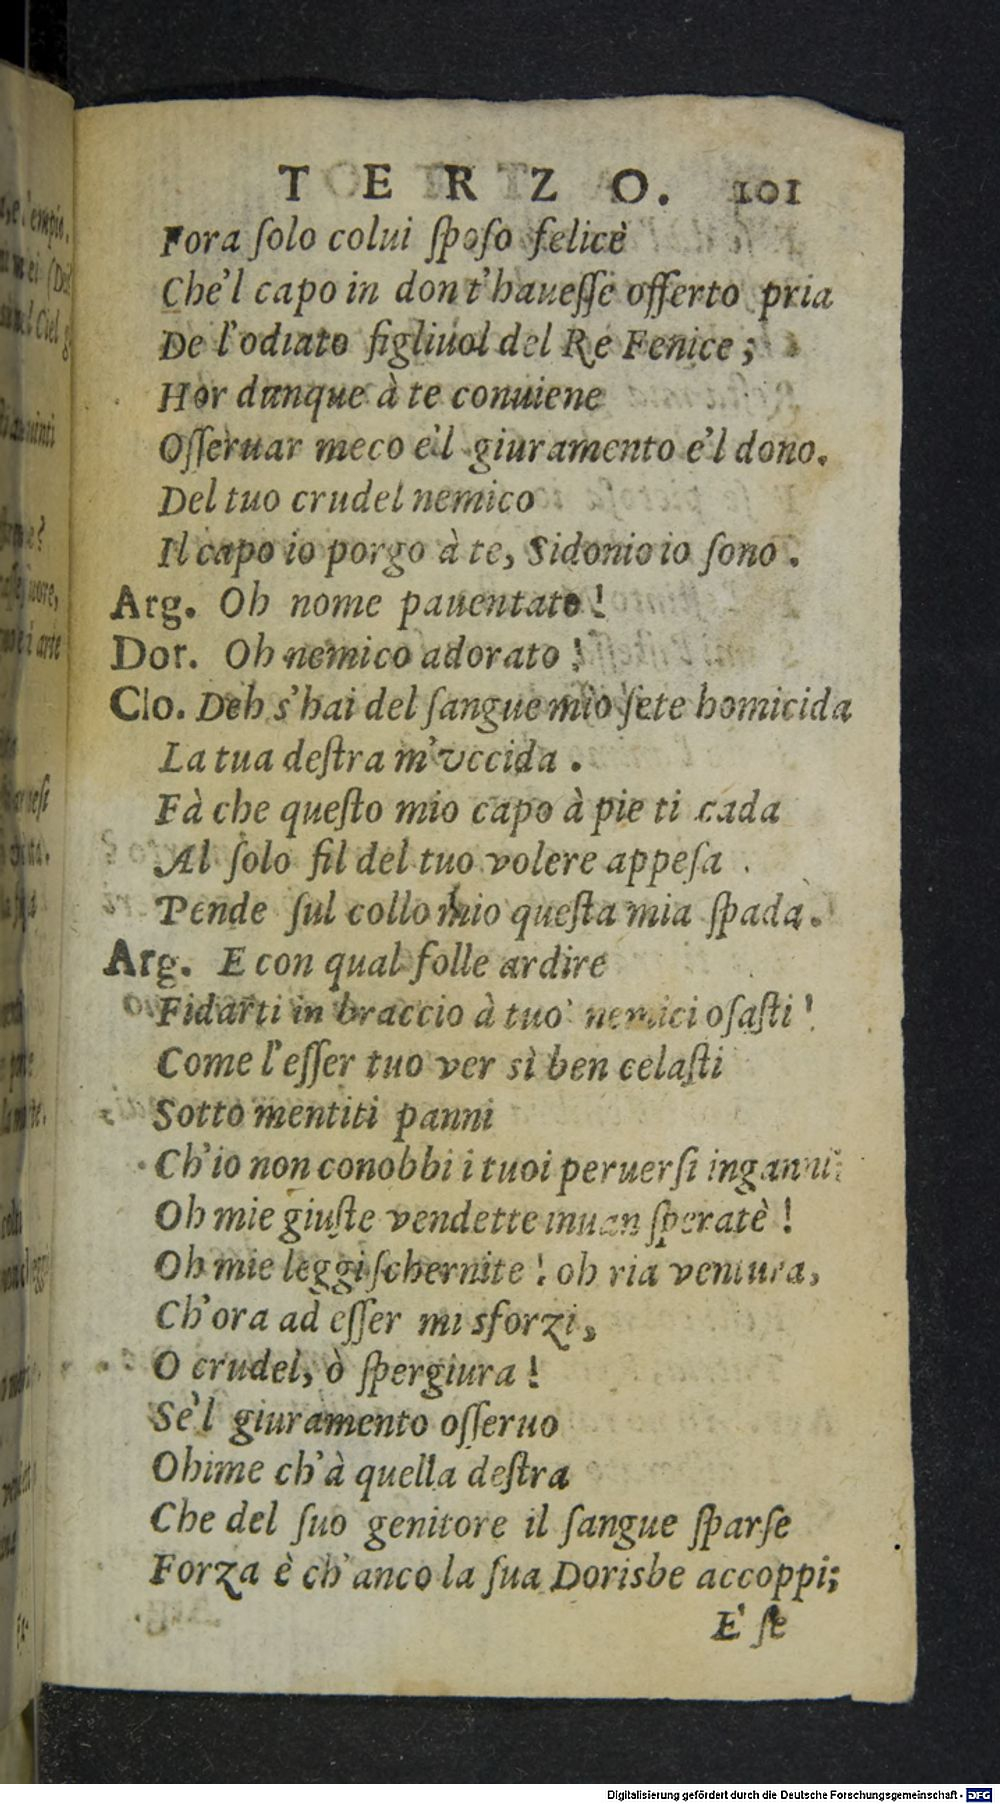 TERZO. 101
Fora ſolo colui ſpoſo felice
Che'l capo in don t'haueſſe offerto pria
De l'odiato figliuol del Re Fenice;
Hor dunque à te conuiene
Oſſeruar meco e'l giuramento e'l dono.
Del tuo crudel nemico
Il capo io porgo à te, Sidonio io ſono.
Arg. Oh nome pauentato!
Dor. Oh nemico adorato!
Clo. Deh s'hai del ſangue mio ſete homicida
La tua deſtra m'vccida.
Fà che queſto mio capo à pie ti cada
Al ſolo fil del tuo volere appeſa
Pende ſul collo mio queſta mia ſpada.
Arg. E con qual folle ardire
Fidarti in braccio à tuo' nemici oſaſti!
Come l'eſſer tuo ver sì ben celaſti
Sotto mentiti panni
Ch'io non conobbi i tuoi peruerſi inganni?
Oh mie giuſte vendette inuan ſperate!
Oh mie leggi ſchernite! oh ria ventura,
Ch'ora ad eſſer mi sforzi,
O crudel, ò ſpergiura!
Se'l giuramento oſſeruo
Ohime ch'à quella deſtra
Che del ſuo genitore il ſangue ſparſe
Forza è ch'anco la ſua Dorisbe accoppi;
E' ſe
Digitalisierung gefördert durch die Deutsche Forschungsgemeinschaft - DFG